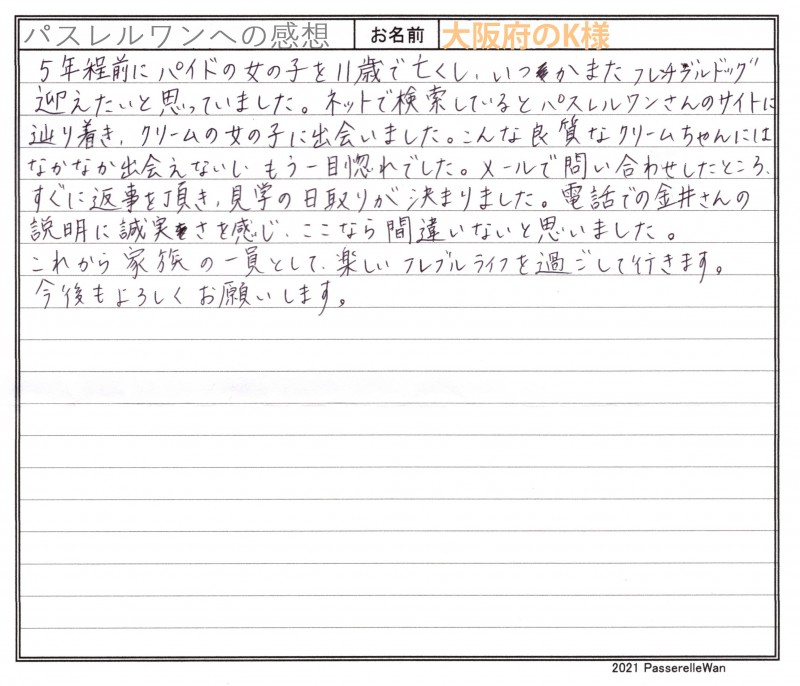 パスレルワンへの感想 お名前 大阪府のK様
5年程前にパイドの女の子を11歳で亡くし、いつかまたフレンチブルドッグ
迎えたいと思っていました。ネットで検索しているとパスレルワンさんのサイトに
辿り着き、クリームの女の子に出会いました。こんな良質なクリームちゃんには
なかなか出会えないし、もう一目惚れでした。メールで問い合わせしたところ、
すぐに返事を頂き、見学の日取りが決まりました。電話での金井さんの
説明に誠実さを感じ、ここなら間違いないと思いました。
これから家族の一員として、楽しいフレブルライフを過ごして行きます。
今後もよろしくお願いします。
2021 PasserelleWan